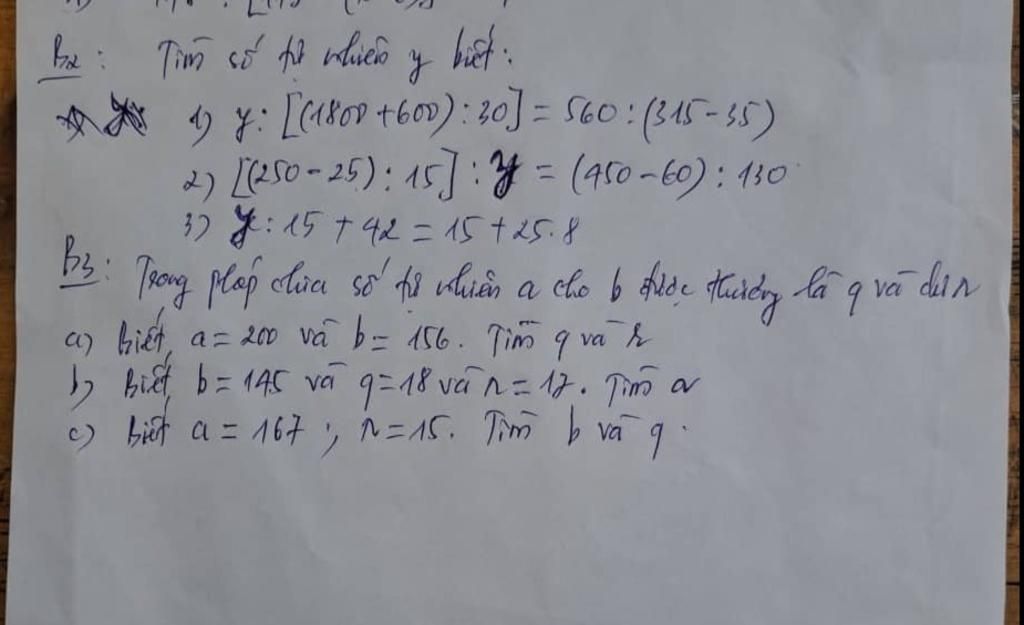 B2: Tìm số tự nhiên y biết:
1) y: [(1800+600):30] = 560:(315-35)
2) [(250-25):15]:y = (450-60):130
3) y:15+42 = 15+25.8
B3: Trong phép chia số tự nhiên a cho b được thương là q và dư r
a) Biết a = 200 và b = 156. Tìm q và r
b) Biết b = 145 và q = 18 và r = 17. Tìm a
c) Biết a = 167; r = 15. Tìm b và q.